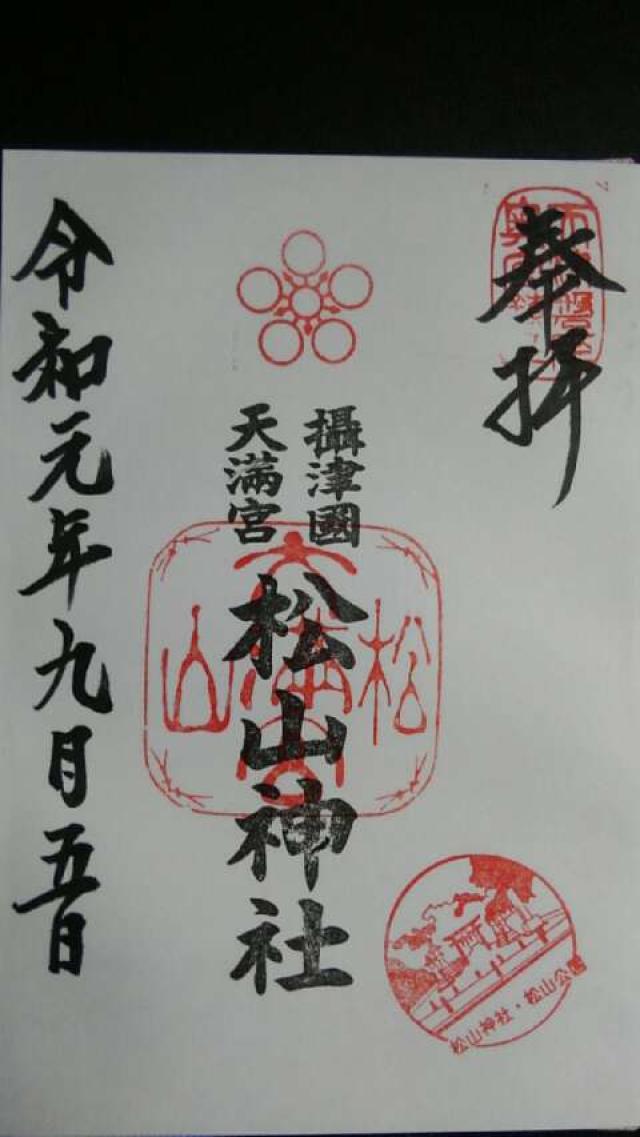 奉拝
攝津國
天満宮
松山神社
令和元年九月五日
松山
天満宮
松山神社・松山公園